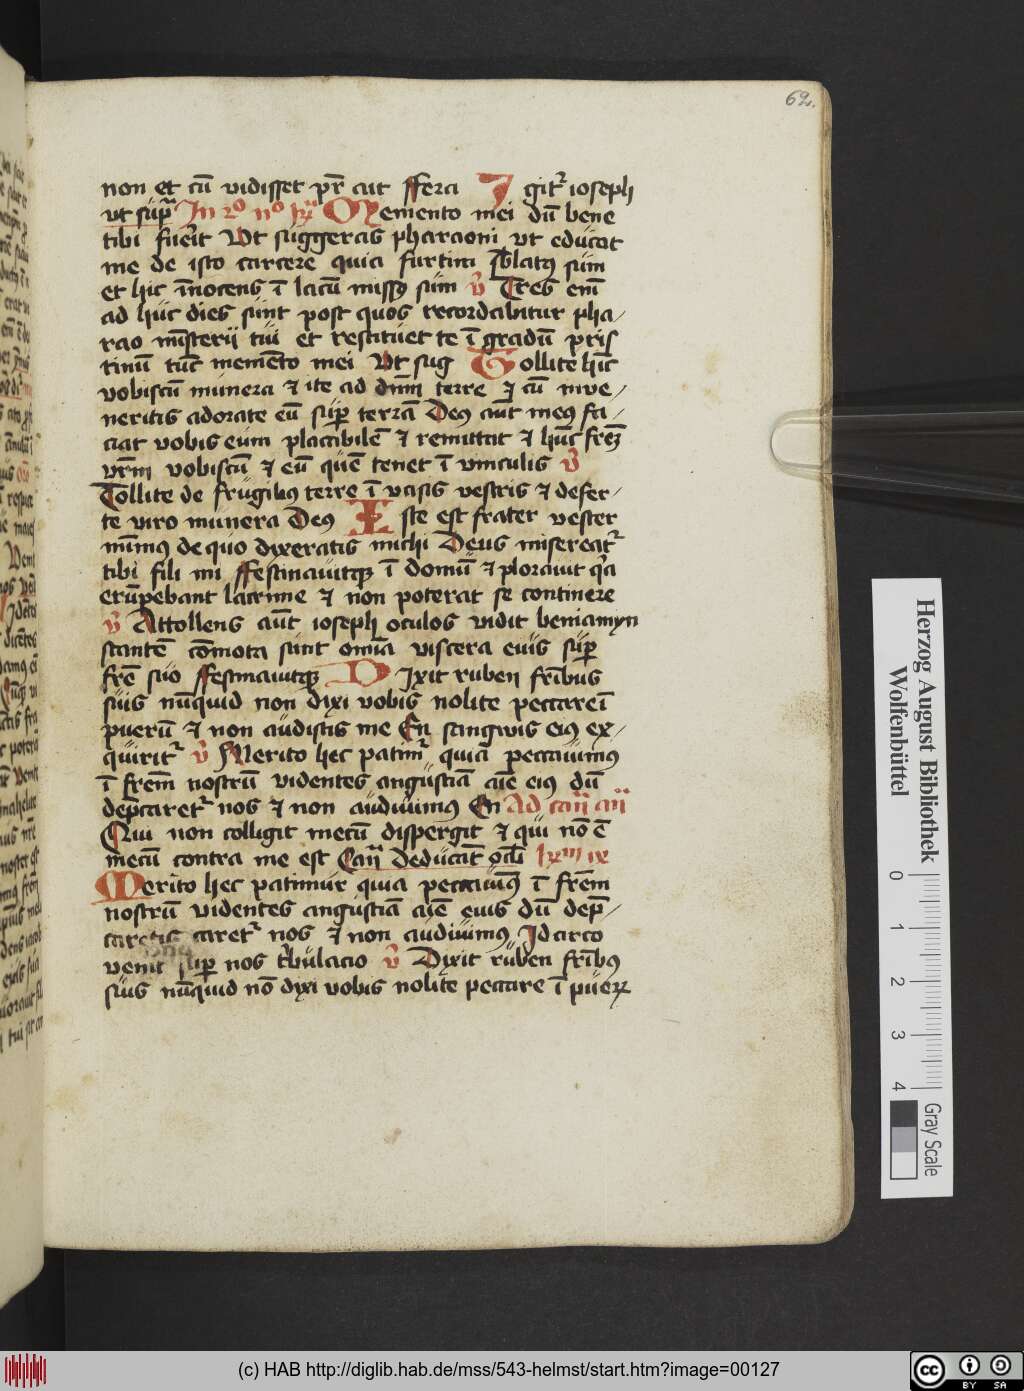 62.
non et cū vidisset pr̄ ait ffera Igit᷑ ioseph
vt sup̄ᵃ In 2º nº Memento mei dū bene
tibi fuerit Vt suggeras pharaoni vt educat
me de isto carcere quia furtim sublatꝯ sum
et hic īnocens ī lacū missꝯ sum v̄ Tres em̄
ad huc dies sunt post quos recordabitur pha/
rao misterii tui et restituet te ī gradū pris
tinū tūc memēto mei Vt sug Tollite hīc
vobiscū munera ⁊ ite ad dnm̄ terre ⁊ cū inve/
neritis adorate eū suꝑ terrā Deꝯ aut̄ meꝯ fa/
ciat vobis eum placibilē ⁊ remittat ⁊ hūc frēꝫ
vrm̄ vobiscū ⁊ eū quē tenet ī vinculis v̄
Tollite de frugibꝯ terre ī vasis vestris ⁊ defer/
te viro munera Deꝯ Iste est frater vester
mīmꝯ de quo dixeratis michi Deus misereat᷑
tibi fili mi ffestinauitqꝫ ī domū ⁊ plorauit qͥa
erūpebant lacrime ⁊ non poterat se continere
v̄ Attollens aūt ioseph oculos vidit beniamyn
stantē cōmota sunt omīa viscera eius suꝑ
frē suo ffestinauitqꝫ Dixit ruben frībus
suis nūquid non dixi vobis nolite peccare ī
puerū ⁊ non audistis me En sangwis eiꝯ ex/
quirit᷑ v̄ Merito hec patim᷑ quia peccauimꝯ
ī frēm nostrū videntes angustiā aīe eiꝯ dū
dep̄caret᷑ nos ⁊ non audiuimꝯ En Ad can̄
Qui non colligit mecū dispergit ⁊ qui nō ē
mecū contra me est Can̄ Deducāt oc̄li
Merito hec patimur quia peccauimꝯ ī frēm
nostrū videntes angustiā aīe eius dū dep̄/
caret᷑ nos ⁊ non audiuimꝯ Idcirco
venit suꝑ nos tͥbulacio v̄ Dixit ruben frībꝯ
suis nūquid nō dixi vobis nolite peccare ī pueꝝ
Herzog August Bibliothek
Wolfenbüttel
0
1
2
3
4
Gray Scale
(c) HAB http://diglib.hab.de/mss/543-helmst/start.htm?image=00127
cc BY SA